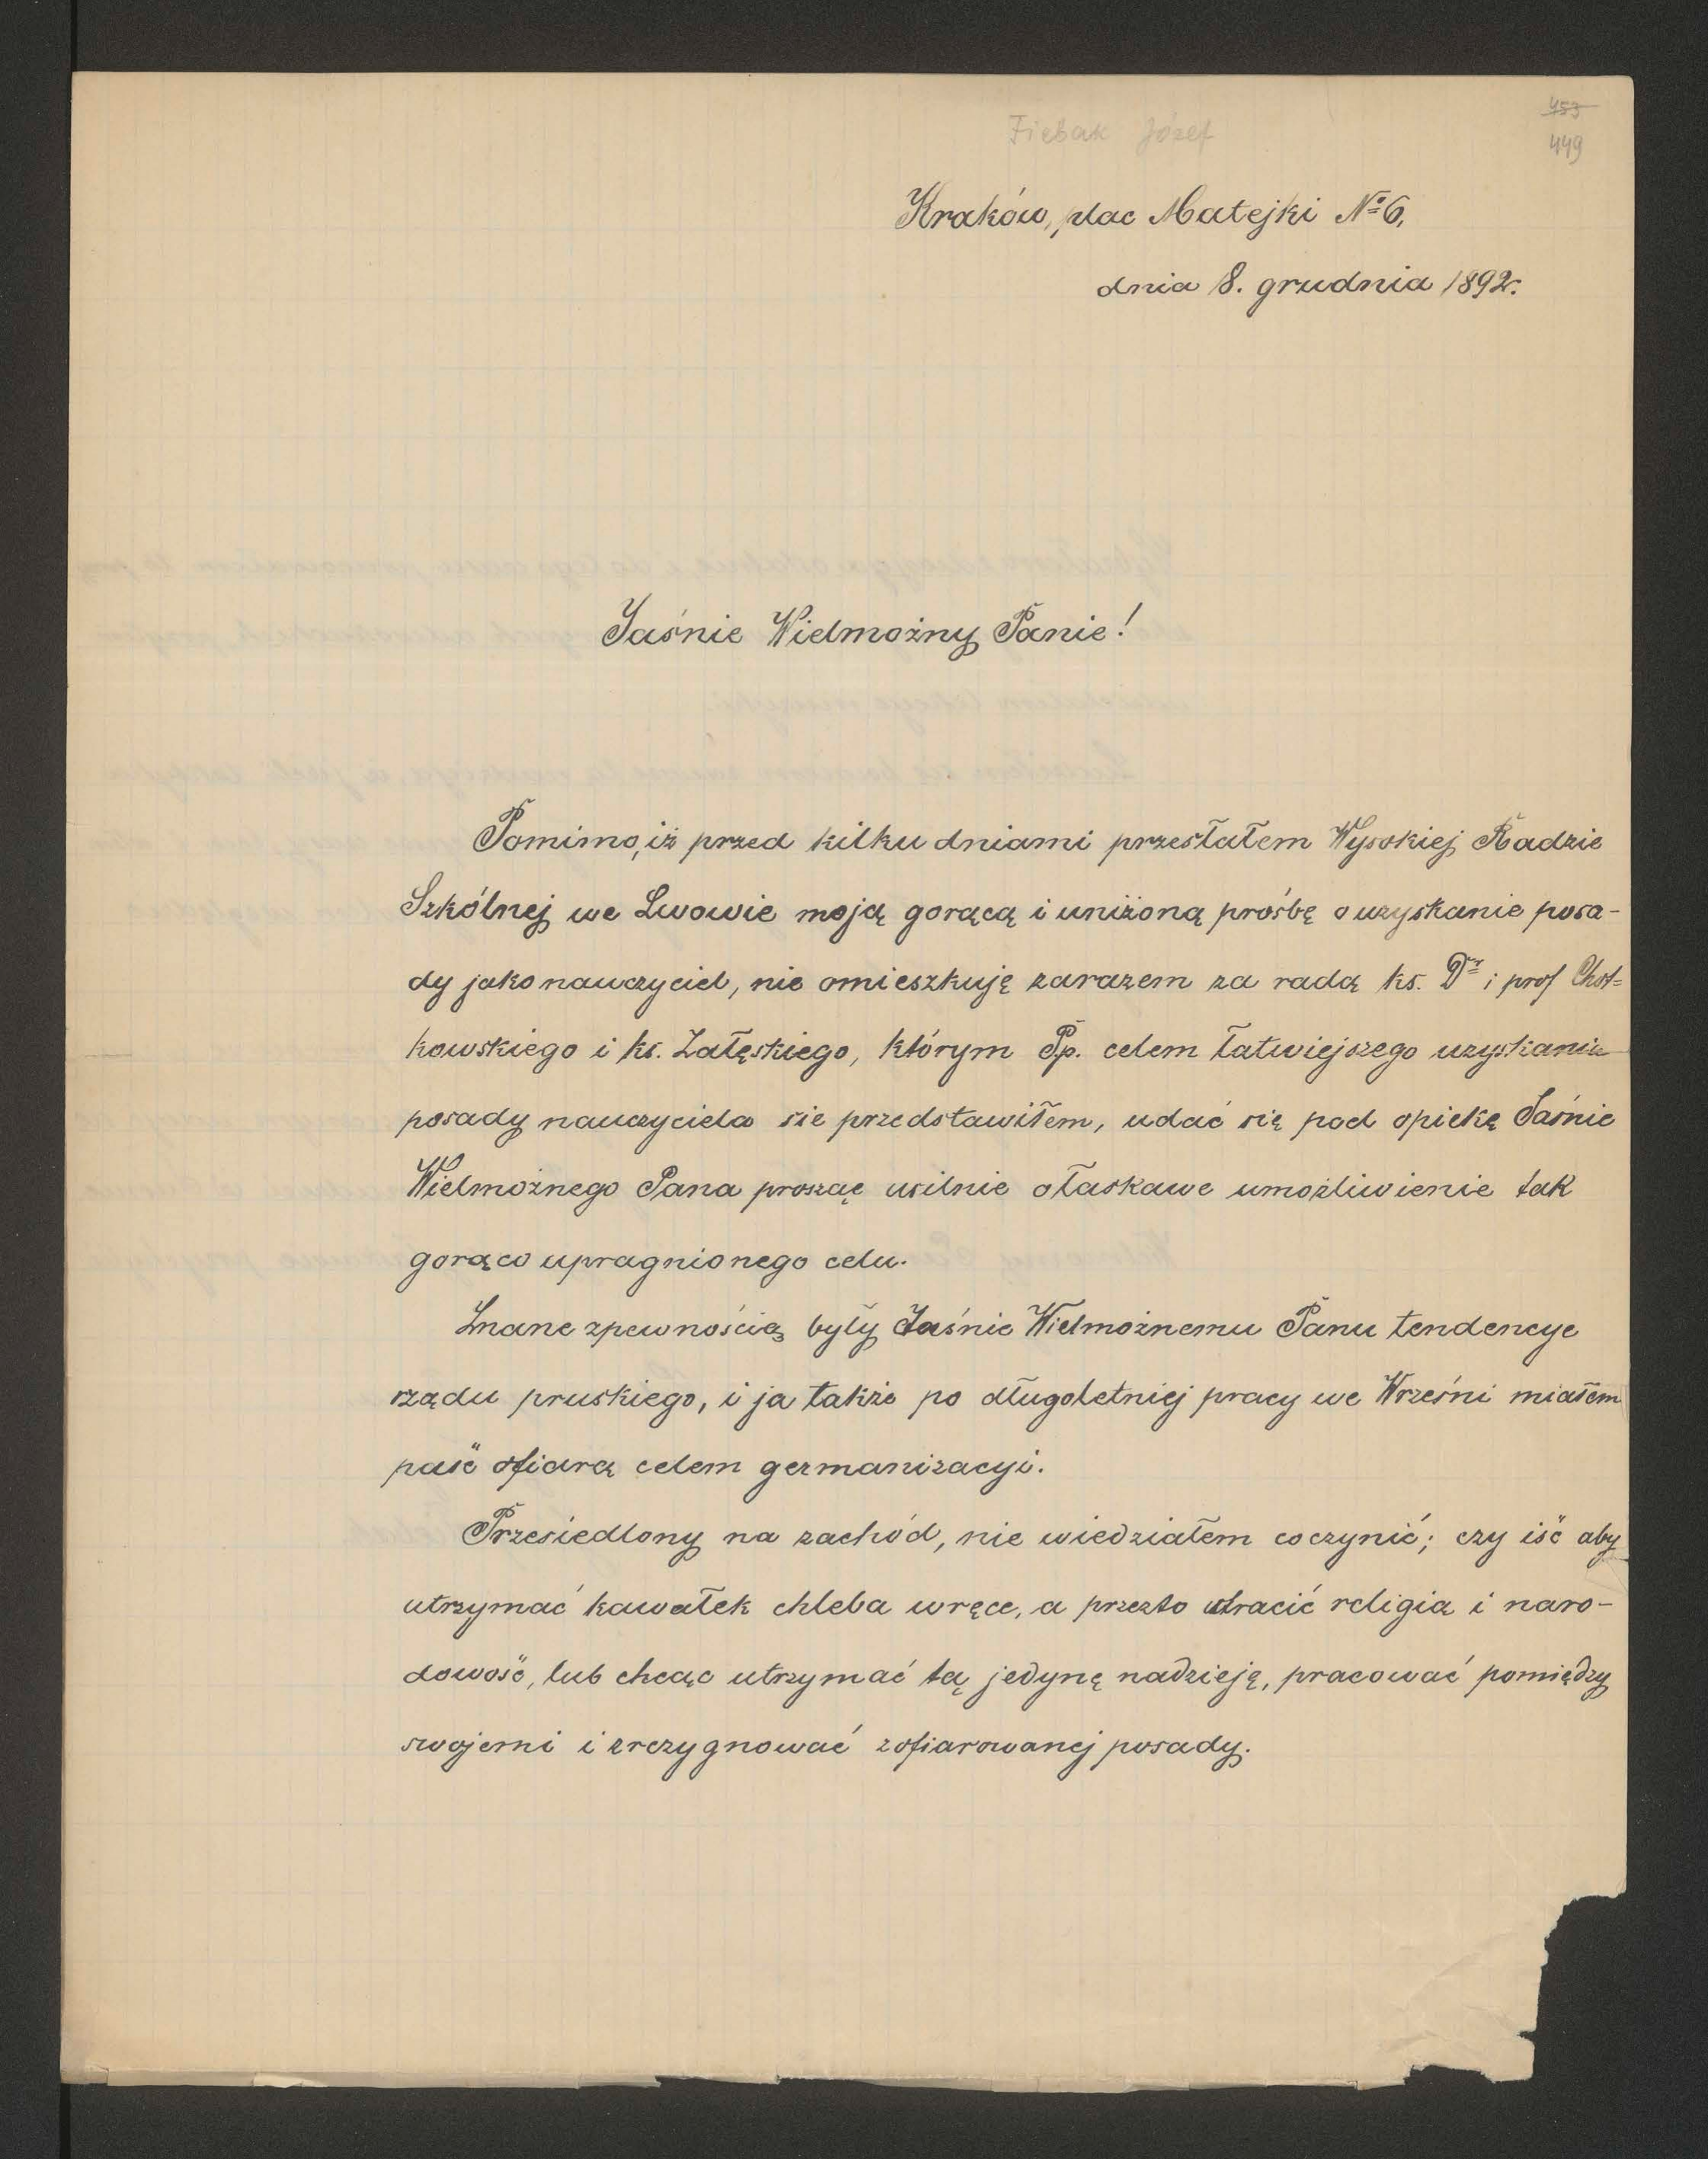 453
Fiebak Józef
449
Kraków, plac Matejki № 6,
dnia 8. grudnia 1892r.
Jaśnie Wielmożny Panie!
Pomimo, iż przed kilku dniami przesłałem Wysokiej Radzie
Szkólnej we Lwowie moją gorącą i uniżoną prośbę o uzyskanie posa-
dy jako nauczyciel, nie omieszkuję zarazem za radą ks. Dr i prof Chot=
kowskiego i ks. Załęskiego, którym Pp. celem łatwiejszego uzyskania
posady nauczyciela sie przedstawiłem, udać się pod opiekę Jaśnie
Wielmożnego Pana prosząc usilnie o łaskawe umożliwienie tak
gorąco upragnionego celu.
Znane zpewnością były Jaśnie Wielmożnemu Panu tendencye
rządu pruskiego, i ja także po długoletniej pracy we Wrześni miałem
paść ofiarą celem germanizacyi.
Przesiedlony na zachód, nie wiedziałem co czynić; czy iść aby
utrzymać kawałek chleba wręce, a przezto utracić religią i naro-
dowość, lub chcąc utrzymać tą jedynę nadzieję, pracować pomiędzy
swojemi i zrezygnować zofiarowanej posady.